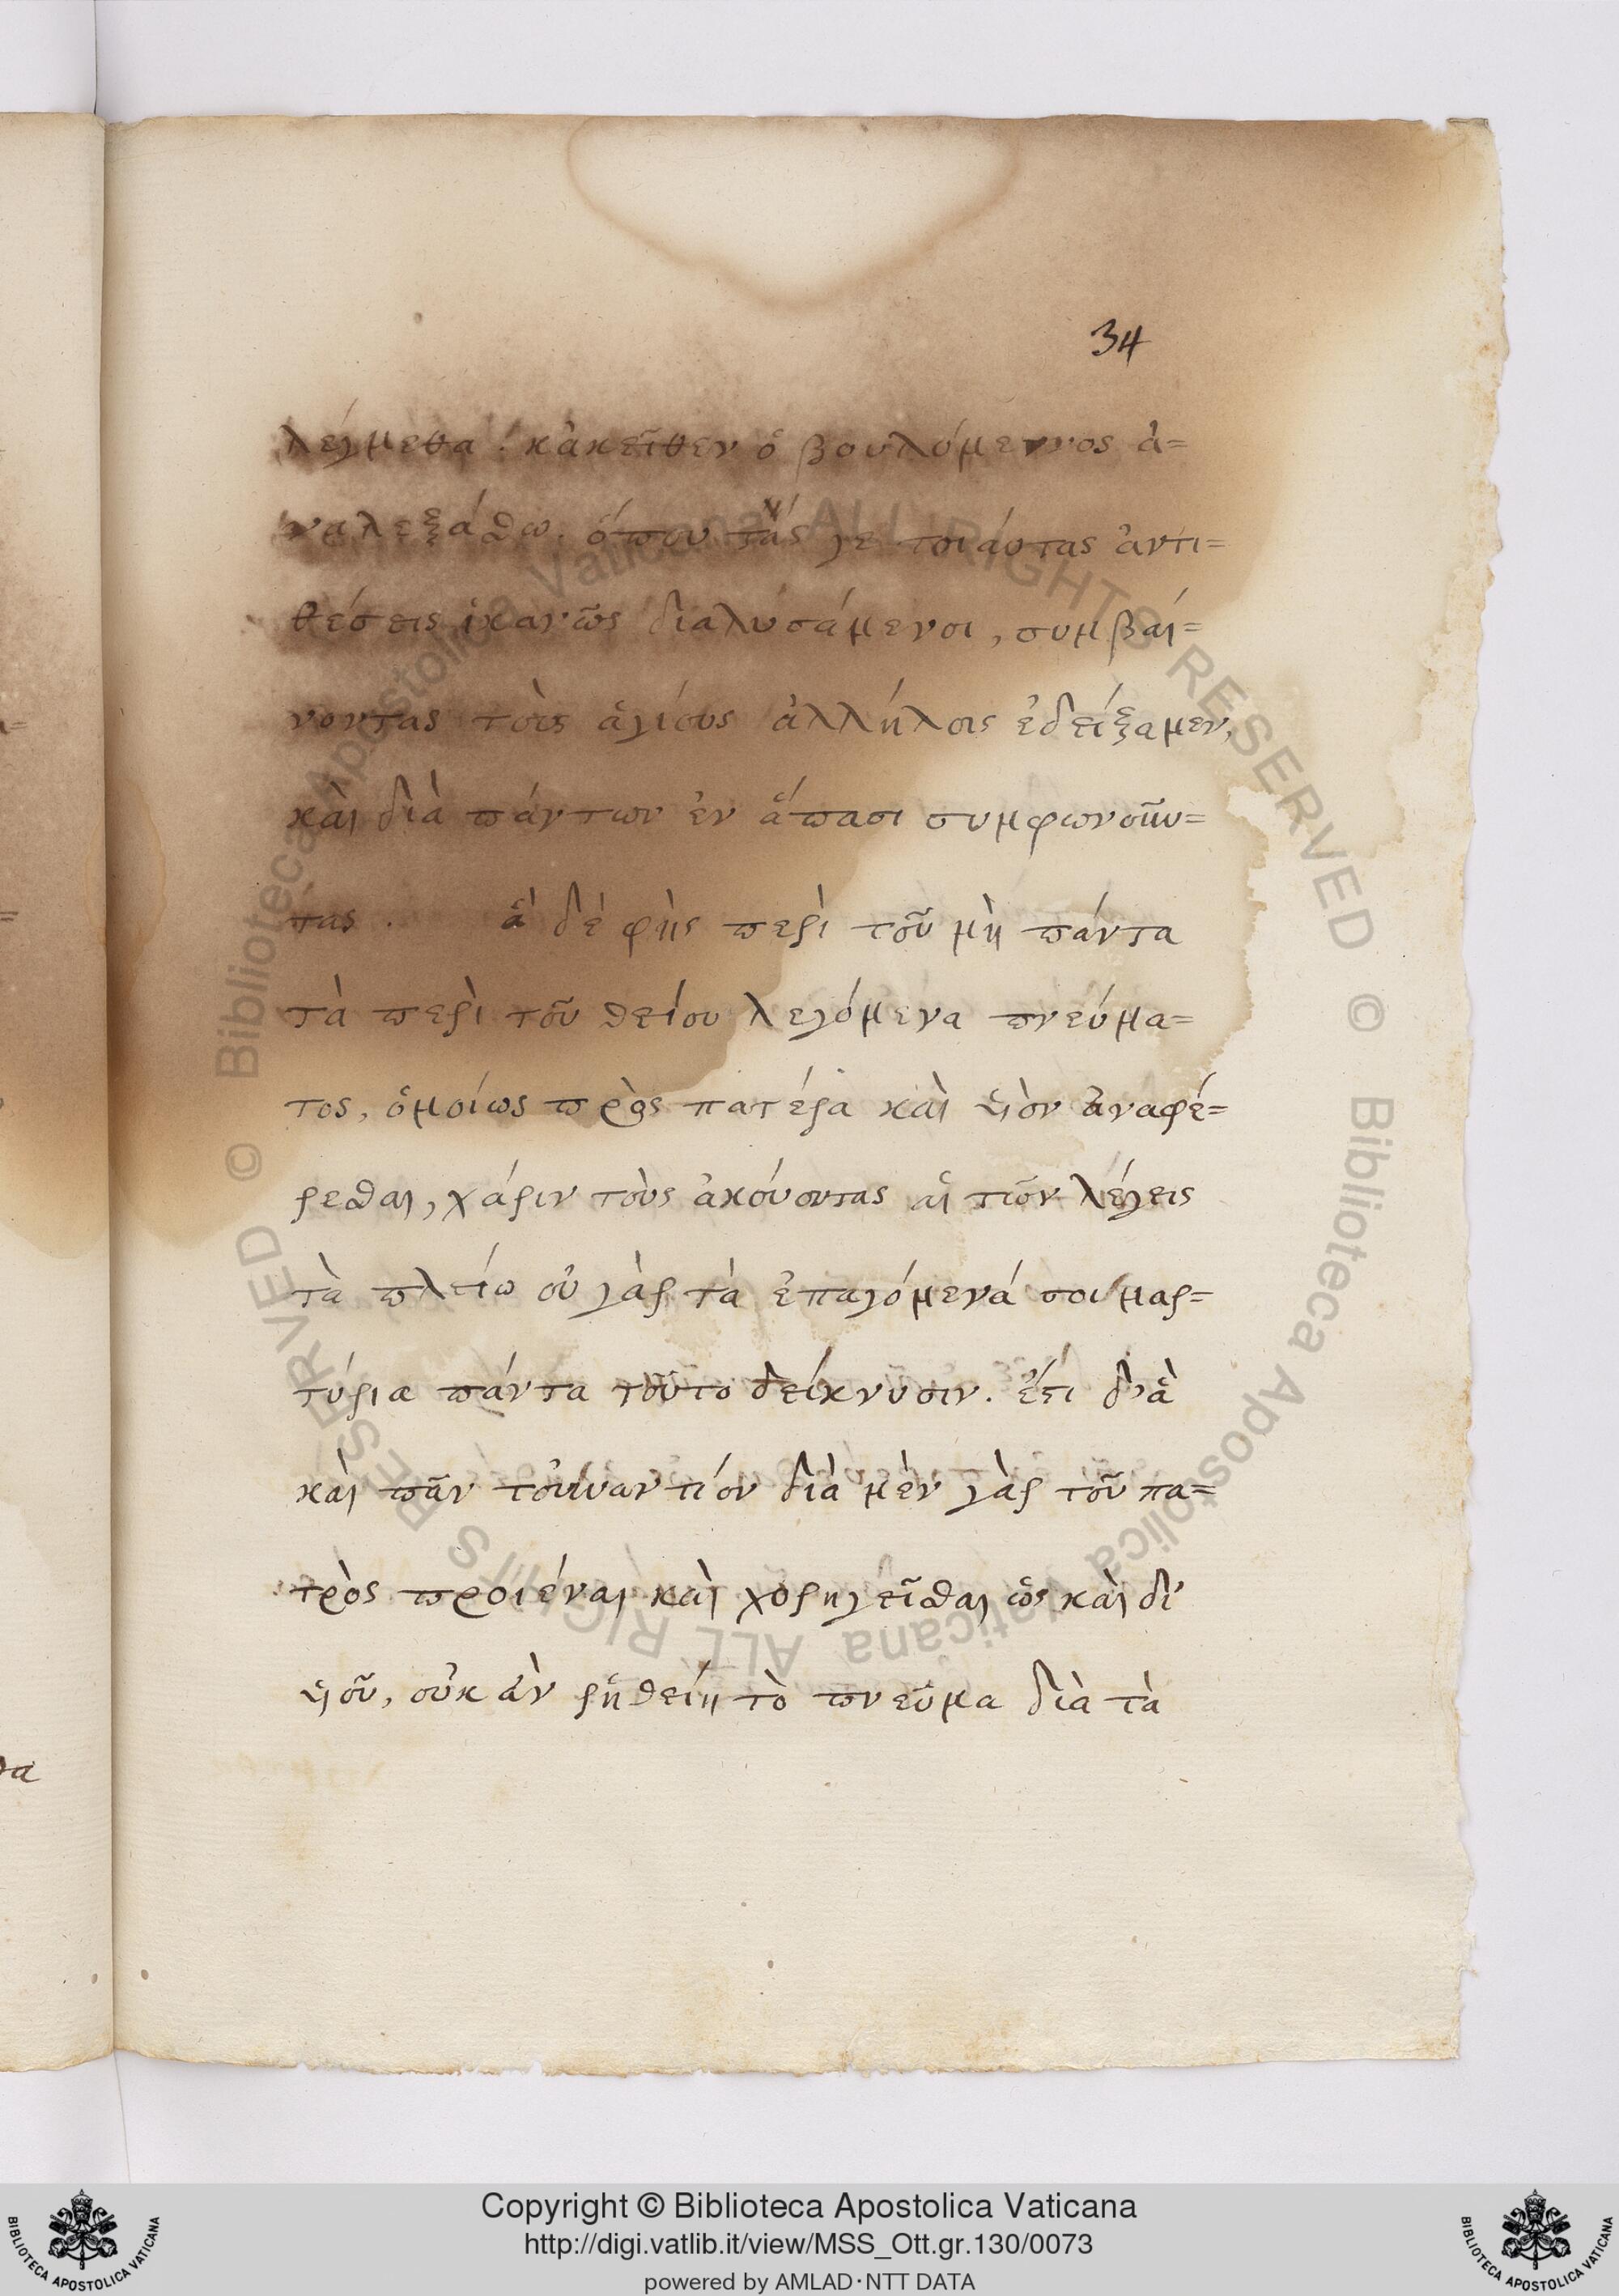 34
λέγμεθα. κἀκεῖθεν ὁ βουλόμενος ἀ=
ναλεξάσθω. ὅπου τάς γε τοιάυτας ἀντι=
θέσεις ἱκανῶς διαλυσάμενοι, συμβαί=
νοντας τοὺς ἁγίους ἀλλήλοις ἐδείξαμεν,
καὶ διὰ πάντων ἐν ἅπασι συμφωνοῦν=
τας. ἃ δὲ φὴς περὶ τοῦ μὴ πάντα
τὰ περὶ τοῦ θείου λεγόμενα πνεύμα=
τος, ὁμοίως πρὸς πατέρα καὶ υἱὸν ἀναφέ=
ρεσθαι, χάριν τοὺς ἀκόυοντας αἰτιῶν λέγεις
τὰ πλείω οὐ γὰρ τὰ ἐπαγόμενά σοι μαρ=
τύρια πάντα τοῦτο δείκνυσιν. ἔτι δ' ἃ
καὶ πᾶν τοὐναντίον διὰ μὲν γὰρ τοῦ πα=
τρὸς προιέναι καὶ χορηγεῖσθαι ὡς καὶ δι'
υἱοῦ, οὐκ ἂν ῥηθείη τὸ πνεῦμα διὰ τὰ
θα
© Biblioteca Apostolica Vaticana ALL RIGHTS RESERVED © Biblioteca Apostolica Vaticana ALL RIGHTS RESERVED
Copyright © Biblioteca Apostolica Vaticana
http://digi.vatlib.it/view/MSS_Ott.gr.130/0073
powered by AMLAD·NTT DATA
BIBLIOTECA APOSTOLICA VATICANA
BIBLIOTECA APOSTOLICA VATICANA